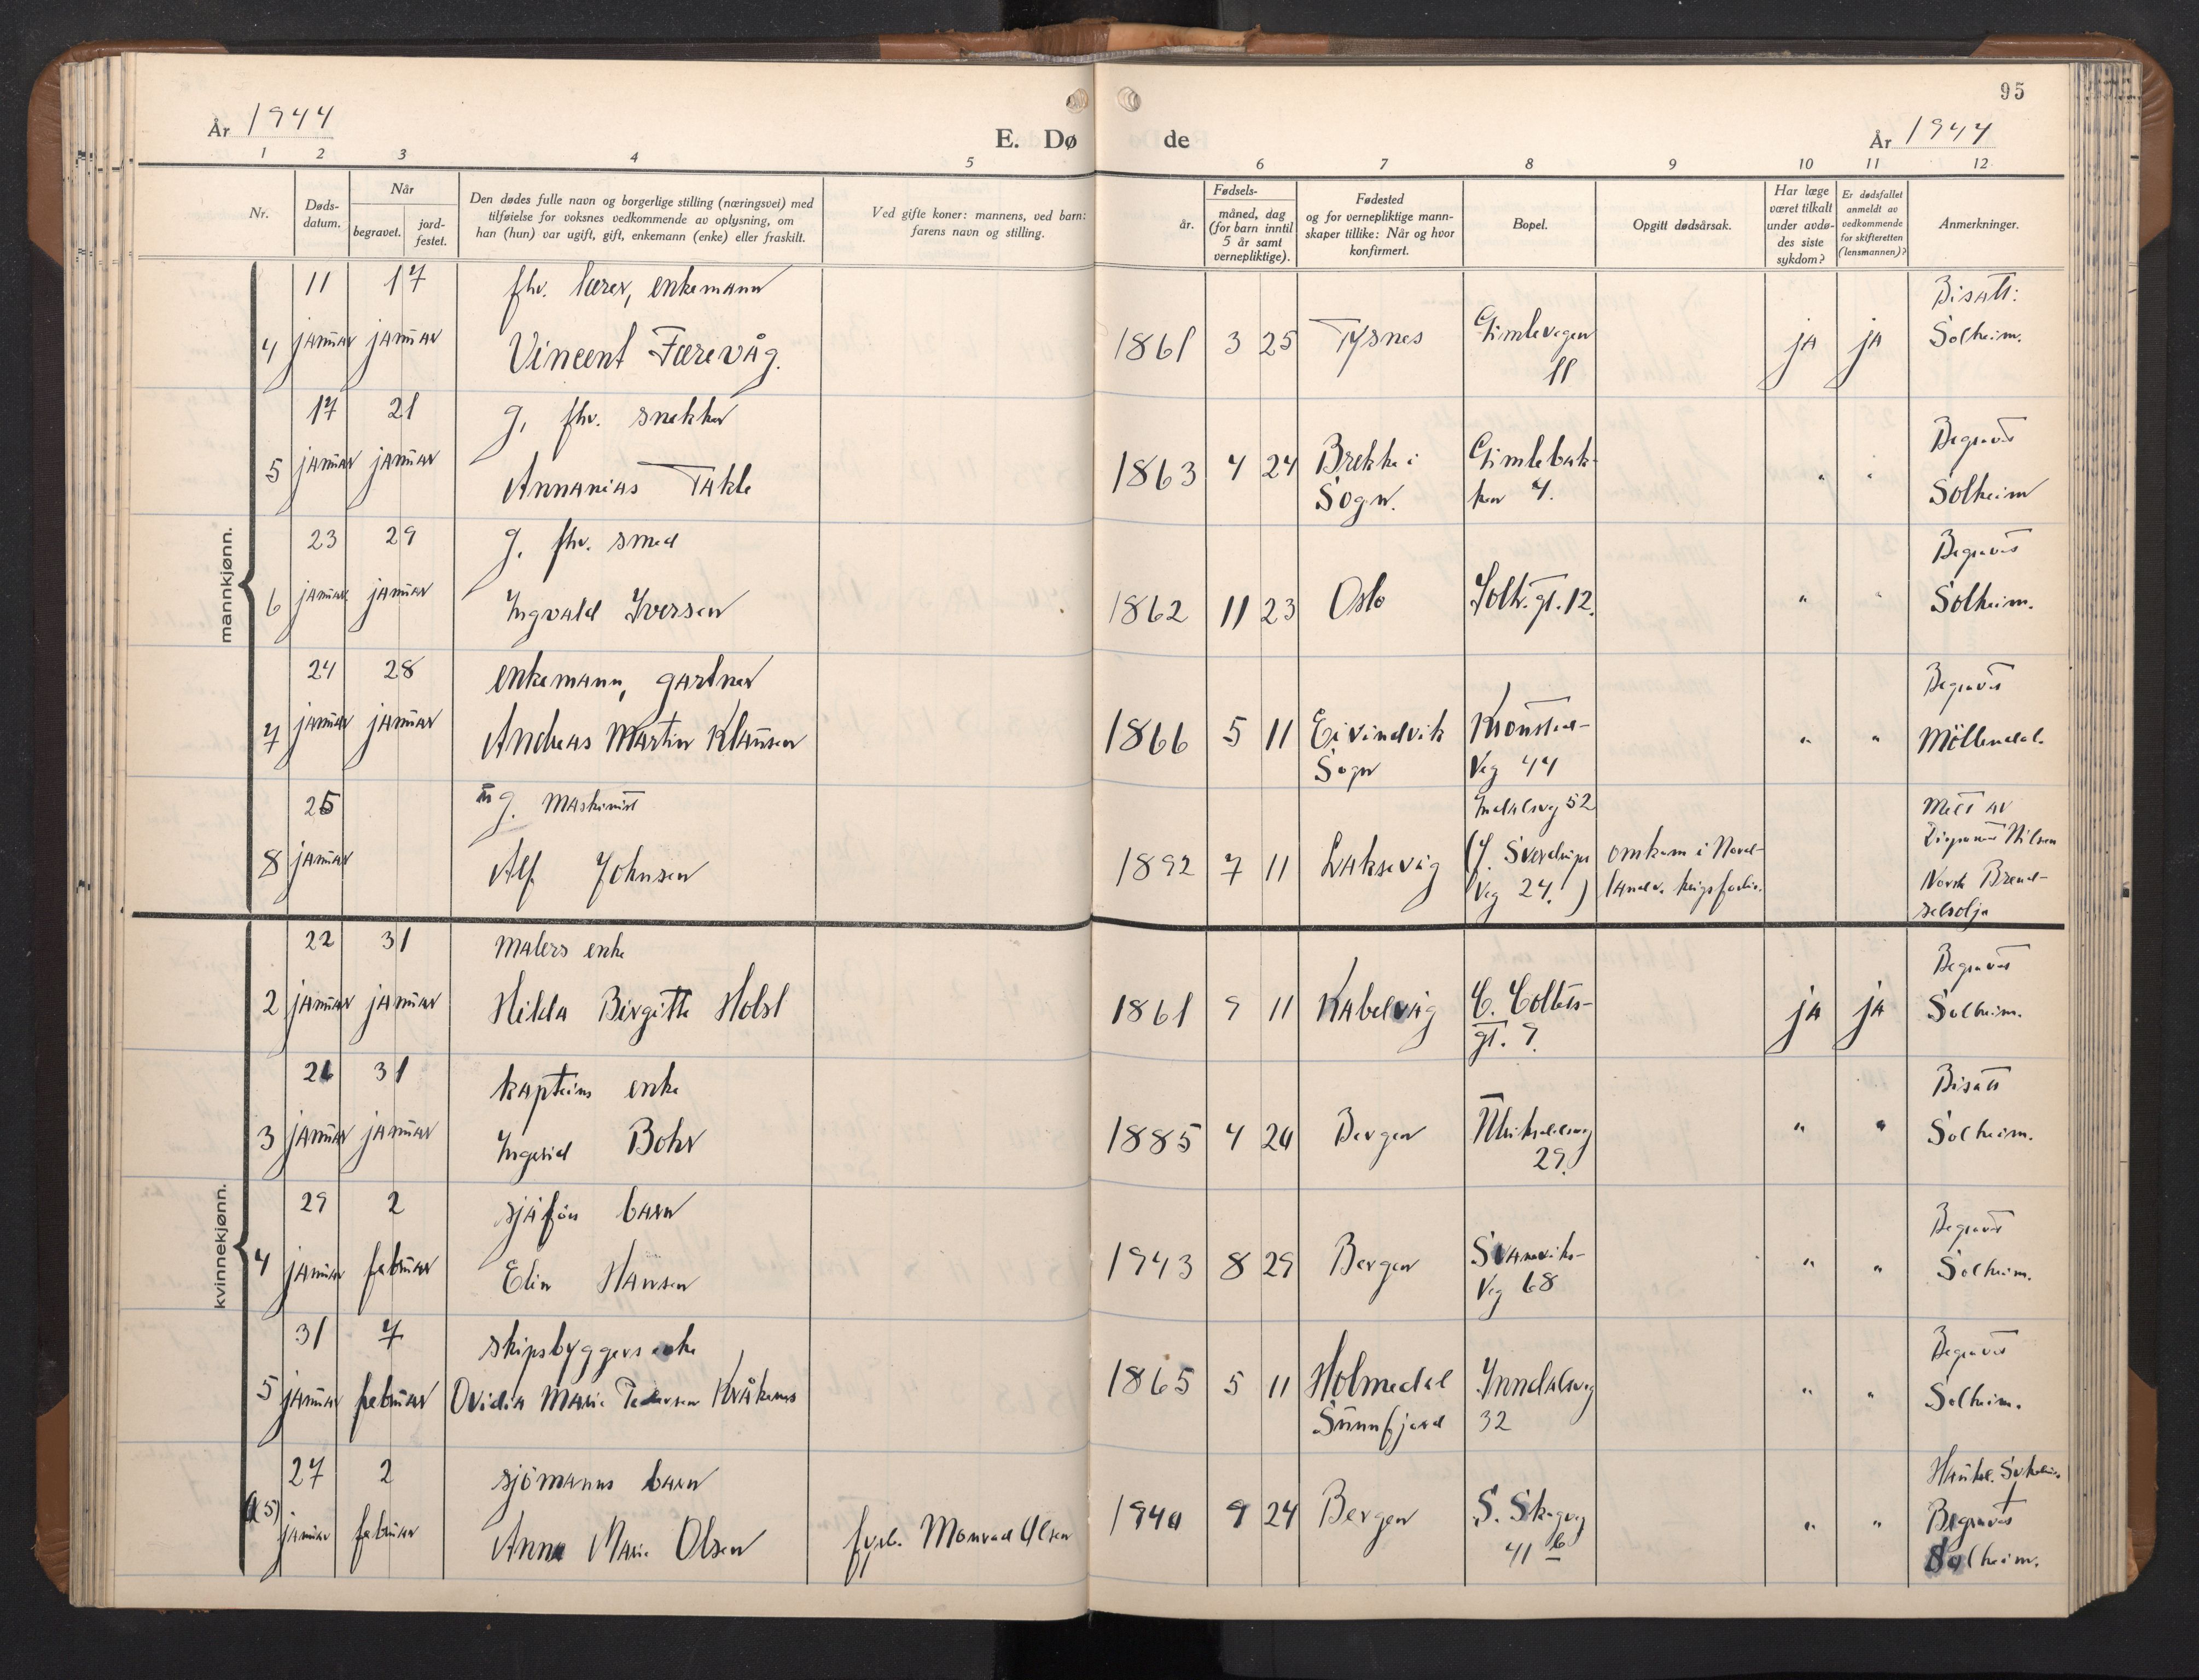 95
År 1944
E. Dø de
År 1944
1 2 3 4 5 6 7 8 9 10 11 12
Nr.
Døds-
datum.
Når
begravet.
jord-
festet.
Den dødes fulle navn og borgerlige stilling (næringsvei) med
tilføielse for voksnes vedkommende av oplysning, om
han (hun) var ugift, gift, enkemann (enke) eller fraskilt.
Ved gifte koner: mannens, ved barn:
farens navn og stilling.
Fødsels-
år.
måned, dag
(for barn inntil
5 år samt
vernepliktige).
Fødested
og for vernepliktige mann-
skaper tillike: Når og hvor
konfirmert.
Bopel.
Opgitt dødsårsak.
Har læge
været tilkalt
under avdø-
des siste
sykdom?
Er dødsfallet
anmeldt av
vedkommende
for skifteretten
(lensmannen)?
Anmerkninger.
mannkjønn.
11 17 fhv. lærer, enkemann Bisatt:
4 januar januar Vincent Færevåg. 1861 3 25 Tysnes Gimlevegen ja ja Solheim.
11
17 21 g. fhv. snekker Begravet
5 januar januar Annanias Takle 1863 4 24 Brekke i Gimlebak- " " Solheim
Sogn. ken 4.
23 29 g. fhv. smed Begravet
6 januar januar Ingvald Iversen 1862 11 23 Oslo Solh.gt. 12. " " Solheim.
24 28 enkemann, gartner Begravet
7 januar januar Andreas Martin Klausen 1866 5 11 Eivindvik Kronstad- " " Möllendal.
Sogn veg 44
25 ug. maskinist Indalsveg 52 Melt av
8 januar Alf Johnsen 1892 7 11 Laksevåg (J. Sverdrups omkom i Nord- Nilsen
veg 24.) land v. krigsforlis. Norsk Brend-
selsolja
kvinnekjønn.
22 31 malers enke Begravet
2 januar januar Hilda Birgitte Holst 1861 9 11 Kabelvåg C. Colbts- ja ja Solheim.
gt. 9.
26 31 kapteins enke Bisatt
3 januar januar Ingerid Bohr 1885 4 24 Bergen Ulriksdalsveg " " Solheim.
29.
29 2 sjåførs barn Begravet
4 januar februar Elin Hansen 1943 8 29 Bergen Svaneviks- " " Solheim.
veg 68
31 7 skipsbyggers enke Begravet
5 januar februar Ovidia Marie Pedersen Kråkenes 1865 5 11 Holmedal Inndalsveg " " Solheim.
Sunnfjord 32
27 2 sjömanns barn Haukel.
(a 5) januar februar Anna Marie Olsen fyrb. Monrad Olsen 1940 9 24 Bergen S. Skogveg " " Begravet
41 b Solheim.